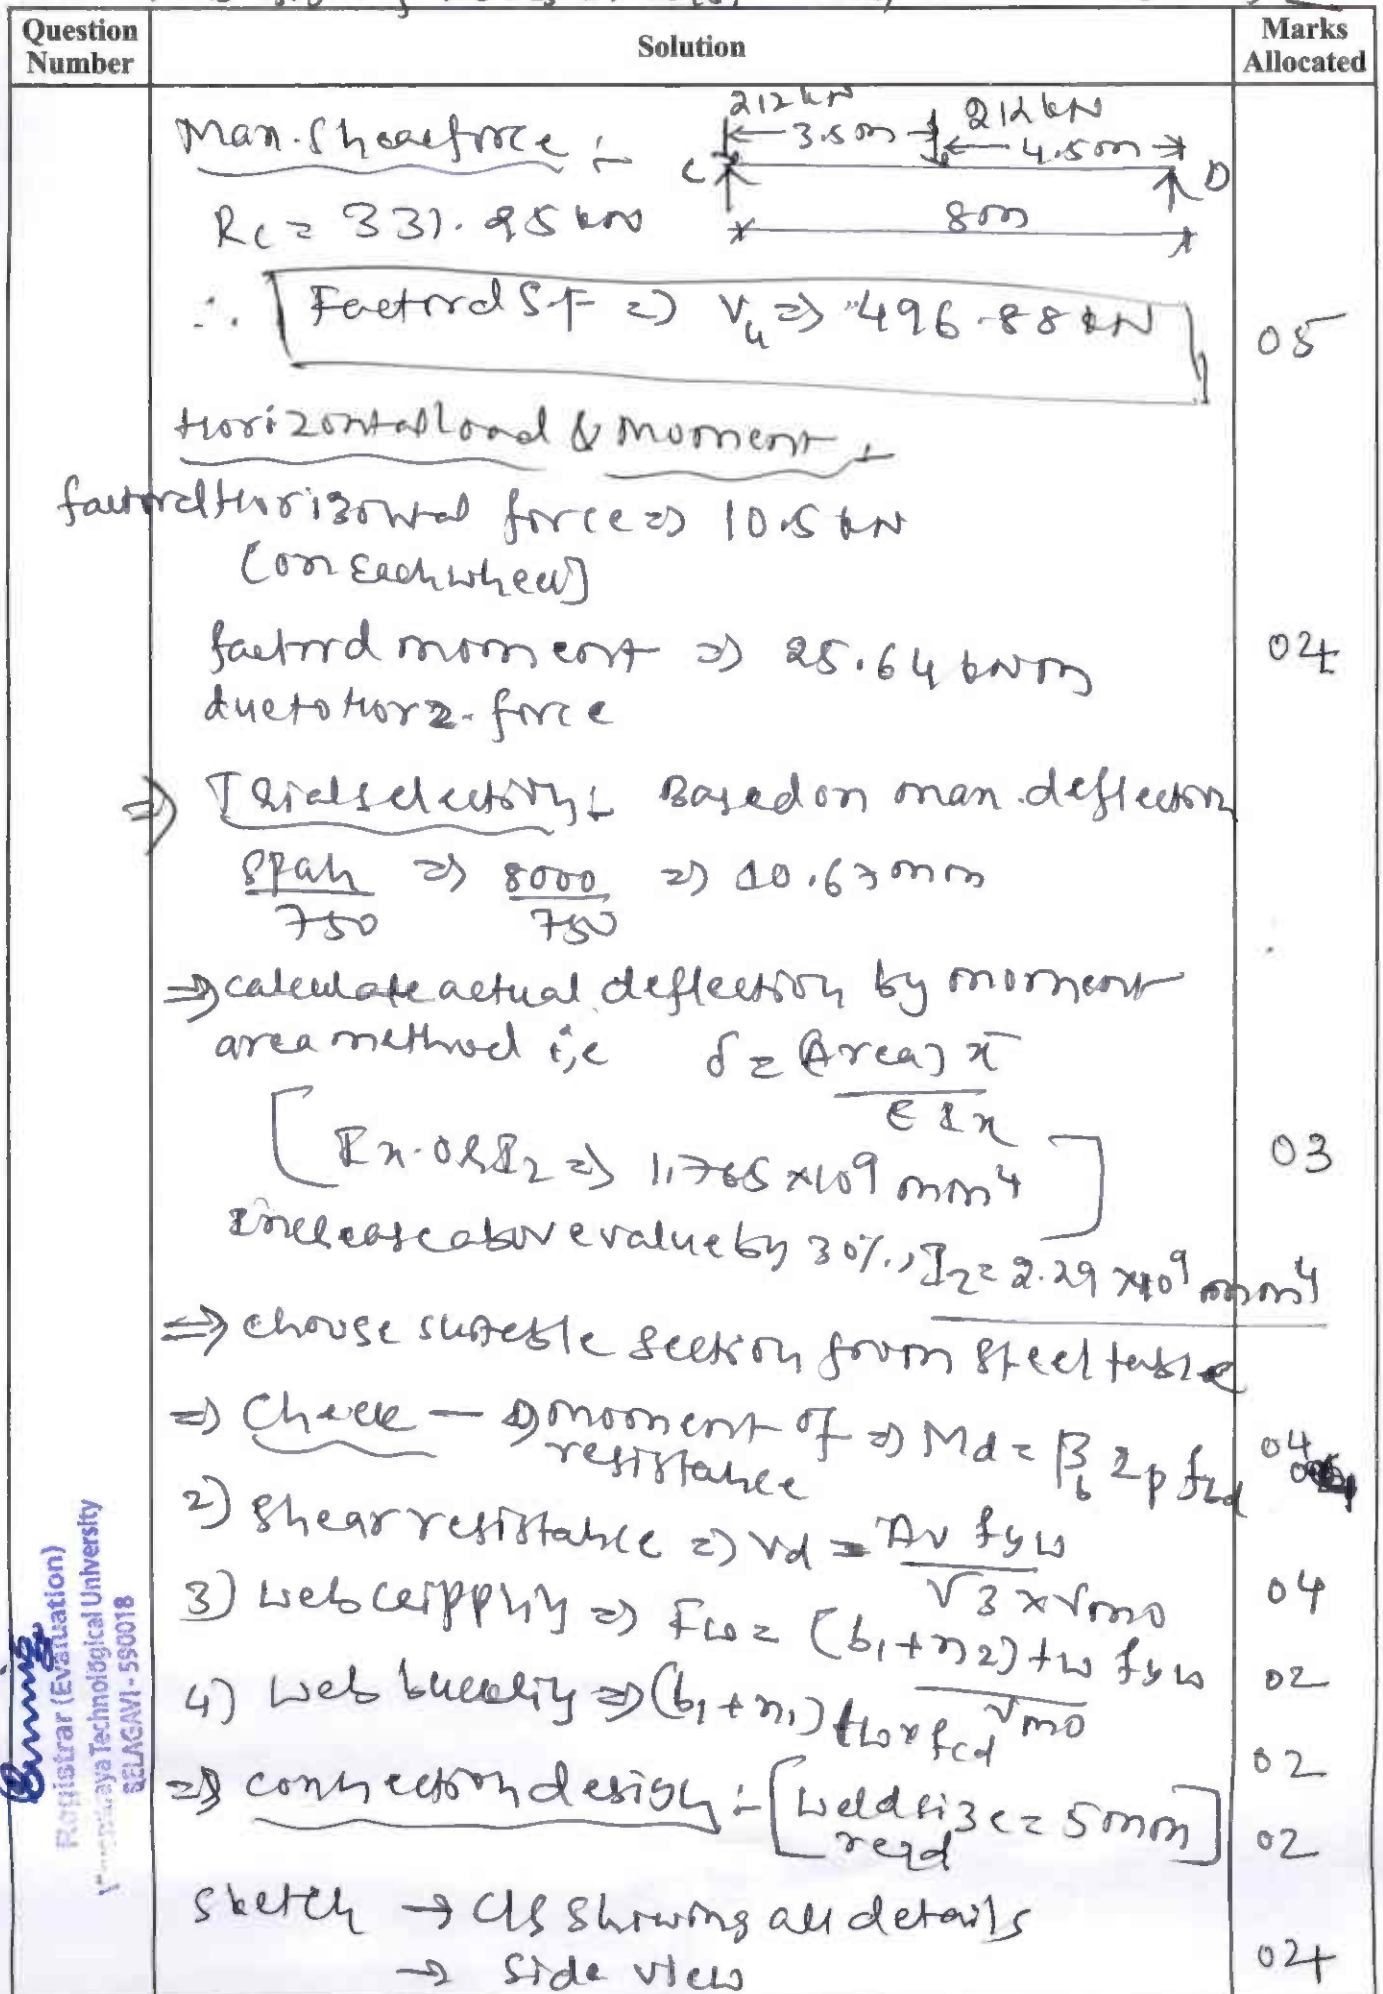 Question Number
Solution
Marks Allocated
Max. Shear force :-
212 kN
3.5m
212 kN
4.5m
C
D
8m
Rc = 331.25 kN
∴ Factored S.F => Vu => 496.88 kN
05
Horizontal load & moment :-
factored Horizontal force => 10.5 kN
[on each wheel]
factord moment => 25.64 kNm
02
due to Horz. force
=> Trial selection :- Based on max. deflection
Span/750 => 8000/750 => 10.67 mm
=> calculate actual deflection by moment
area method i,e δ = (Area) x̄ / E Ix
[Ix. OR Iz => 1.765 x10⁹ mm⁴]
03
Increase above value by 30%, Iz = 2.29 x10⁹ mm⁴
=> choose suitable section from steel table
=> Check - 1) moment of resistance => Md = βb Zp fbd
04
2) Shear resistance => Vd = Av fyw / √3 x γmo
04
3) Web crippling => Fw = (b1+n2) tw fyw / γmo
02
4) Web buckling => (b1+n1) tw x fcd
02
=> connection design :- [Weld size = 5mm reqd]
02
Sketch → C/S showing all details
→ Side view
02
Registrar (Evaluation)
Technological University
BELAGAVI - 590018